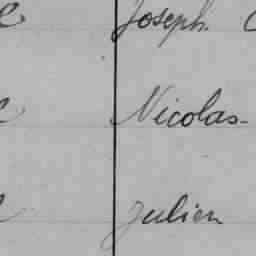 Joseph
Nicolas
Julien